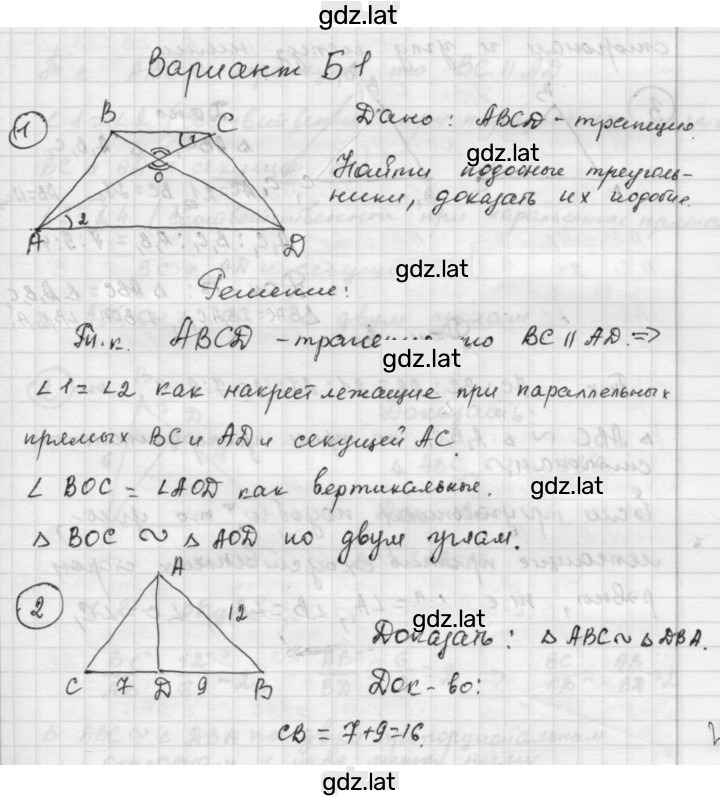 gdz.lat
Вариант Б1
1
B C 1
O
2
A D
Дано: ABCD - трапеция.
gdz.lat
Найти подобные треуголь-
ники, доказать их подобие.
gdz.lat
Решение:
Т.к. ABCD - трапеция, то BC || AD. =>
gdz.lat
∠1=∠2 как накрест лежащие при параллельных
прямых BC и AD и секущей AC.
gdz.lat
∠ BOC = ∠AOD как вертикальные.
gdz.lat
△ BOC ~ △ AOD по двум углам.
2
A
12
C 7 D 9 B
gdz.lat
Доказать: △ ABC ~ △ DBA.
Док-во:
CB = 7+9=16.
gdz.lat